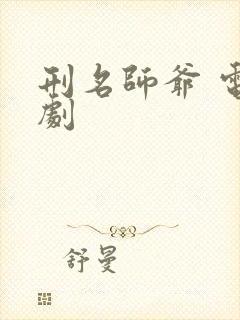 刑名師爺 電
劇
舒曼